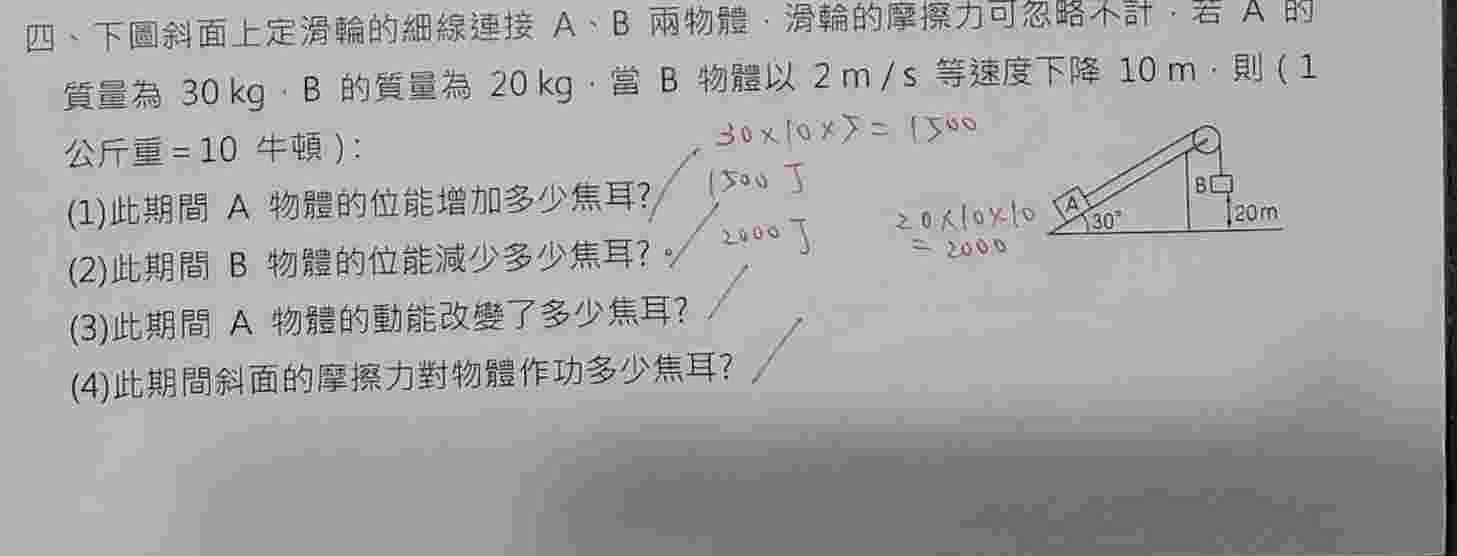 四、下圖斜面上定滑輪的細線連接 A、B 兩物體，滑輪的摩擦力可忽略不計，若 A 的
質量為 30 kg，B 的質量為 20 kg，當 B 物體以 2 m / s 等速度下降 10 m，則 ( 1
公斤重 = 10 牛頓 )：
30×10×5 = 1500
(1)此期間 A 物體的位能增加多少焦耳?
1500 J
(2)此期間 B 物體的位能減少多少焦耳?。
2000 J
20×10×10
= 2000
(3)此期間 A 物體的動能改變了多少焦耳?
(4)此期間斜面的摩擦力對物體作功多少焦耳?
A
30°
B
20m